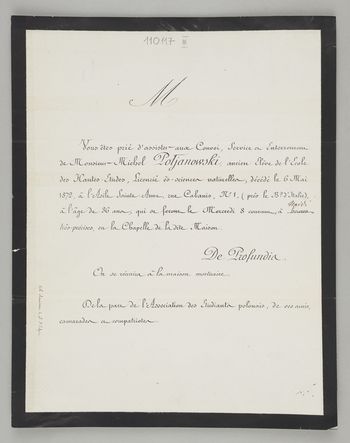 110117
M
Vous êtes prié d'assister aux Convoi, Service et Enterrement
de Monsieur Michel Poljanowski ancien Élève de l'École
des Hautes Études, Licencié ès-sciences naturelles, décédé le 6 Mai
1872, à l'Asile Sainte Anne, rue Cabanis, No 1, (près le Bd d'Italie),
à l'âge de 36 ans, qui se feront le Mercredi 8 courant, à heures
très-précises, en la Chapelle de la dite Maison.
De Profundis.
On se réunira à la maison mortuaire.
De la part de l'Association des Étudiants polonais, de ses amis,
camarades et compatriotes.